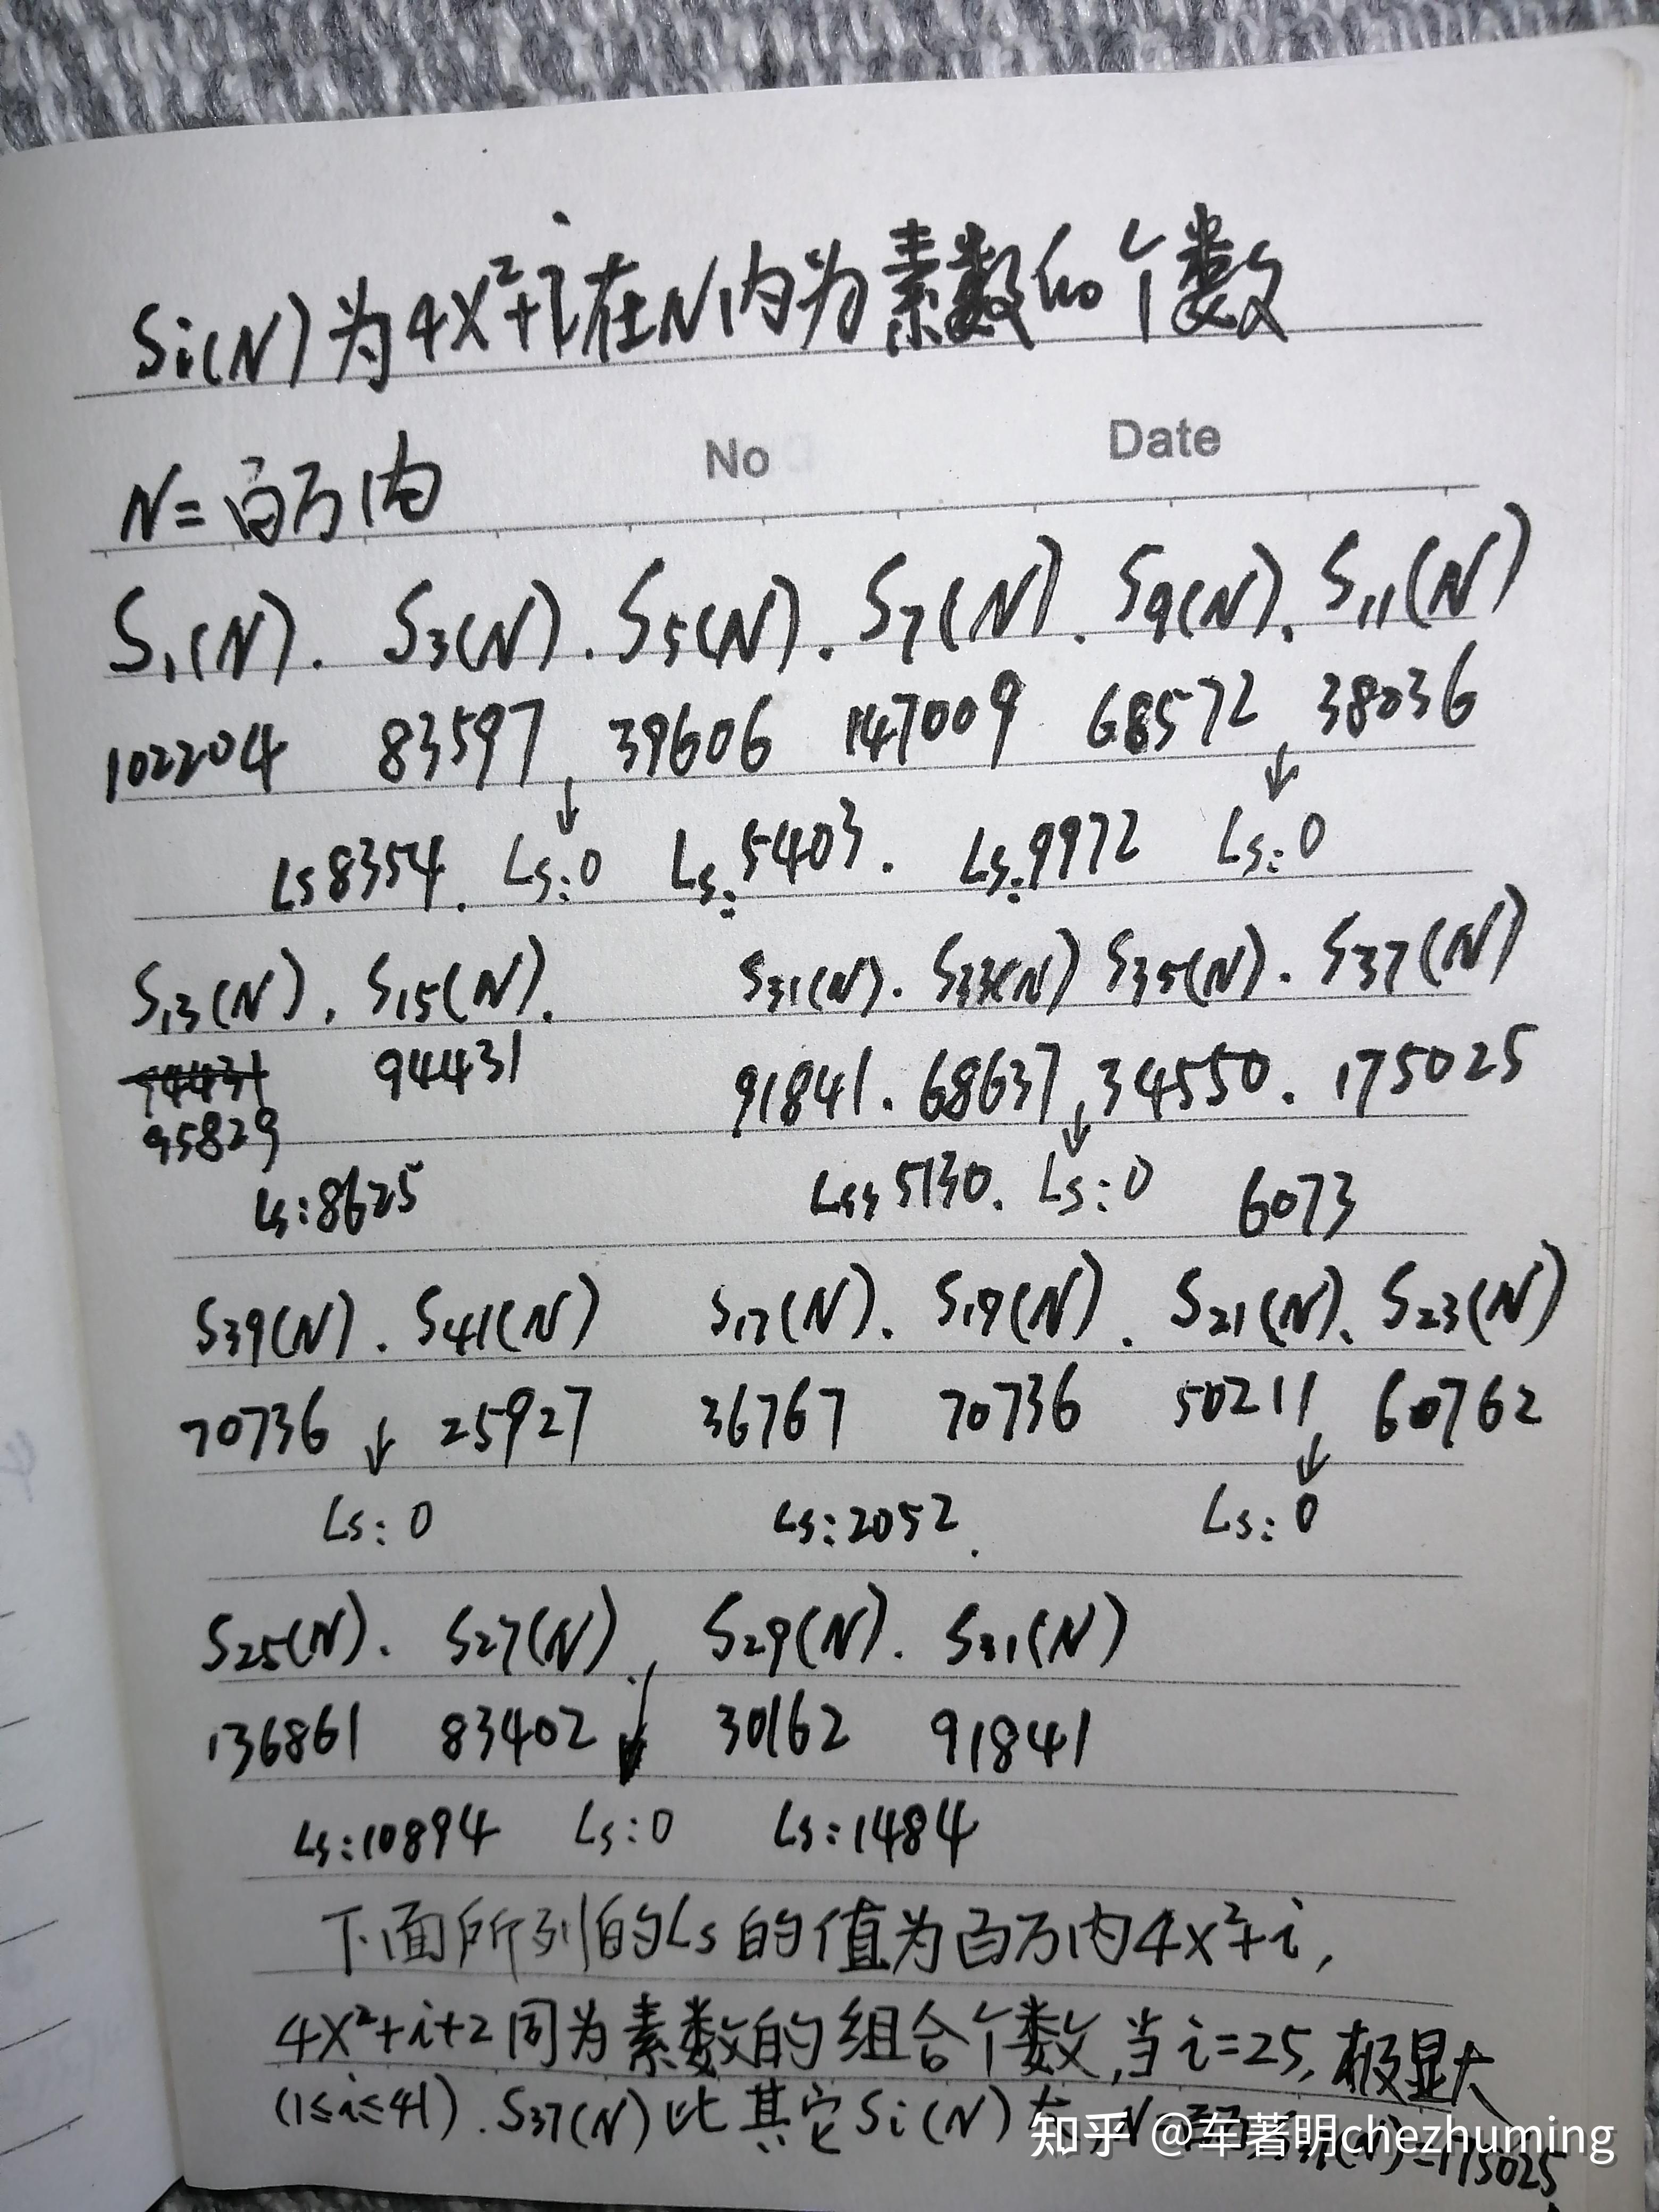 Si(N)为4X²+i在N内为素数的个数
No Date
N=百万内
S₁(N). S₃(N). S₅(N). S₇(N). S₉(N). S₁₁(N)
102204 83597 39606 147009 68572 38036
Ls8354. Ls:0 Ls:5403. Ls:9972 Ls:0
S₁₃(N). S₁₅(N). S₃₁(N). S₃₃(N) S₃₅(N). S₃₇(N)
94431 91841. 68637 34550. 175025
95829
Ls:8625 5130. Ls:0 6073
S₃₉(N). S₄₁(N) S₁₇(N). S₁₉(N). S₂₁(N). S₂₃(N)
70736 25927 36767 70736 50211 60762
Ls:0 Ls:2052. Ls:0
S₂₅(N). S₂₇(N), S₂₉(N). S₃₁(N)
136861 83402 30162 91841
Ls:10894 Ls:0 Ls:1484
下面所列的Ls的值为百万内4X²+i,
4X²+i+2同为素数的组合个数,当i=25,极显大
(1≤i≤41).S₃₇(N)比其它Si(N)大,N=百万,S₃₇(N)=175025
知乎 @车著明chezhuming